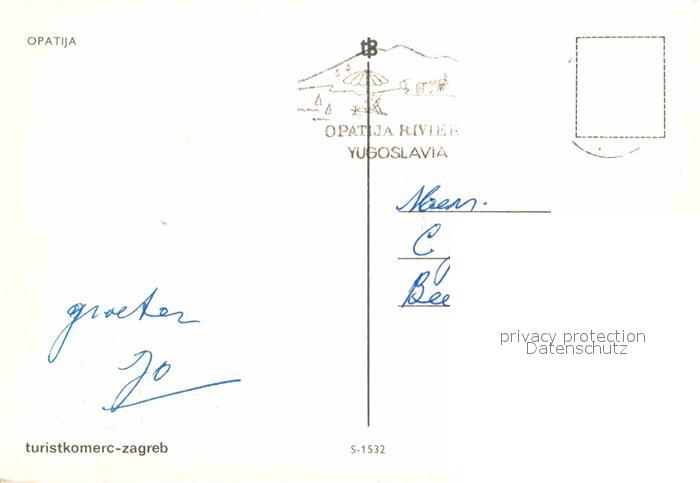 OPATIJA
OPATIJA RIVIER
YUGOSLAVIA
C
Bee
groeten
Jo
privacy protection
Datenschutz
turistkomerc-zagreb
S-1532